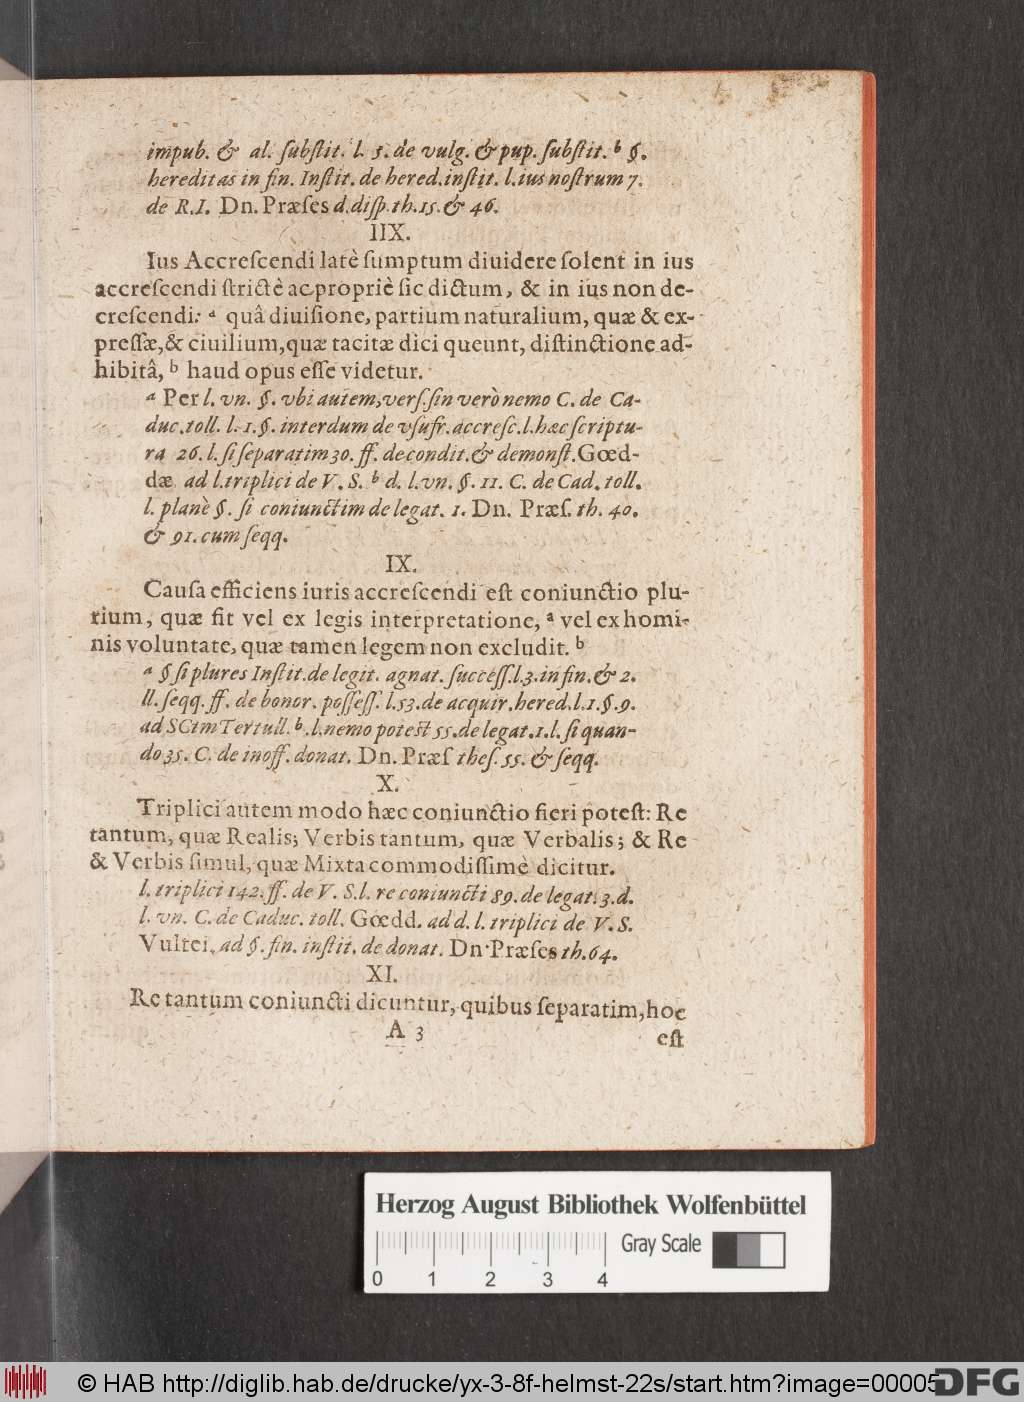 impub. & al. ſubſtit. l. 5. de vulg. & pup. ſubſtit. ᵇ §.
hereditas in fin. Inſtit. de hered. inſtit. l. ius noſtrum 7.
de R. I. Dn. Præſes d. diſp. th. 15. & 46.
IIX.
Ius Accreſcendi latè ſumptum diuidere ſolent in ius
accreſcendi ſtrictè ac propriè ſic dictum, & in ius non de-
creſcendi: ᵃ quâ diuiſione, partium naturalium, quæ & ex-
preſſæ, & ciuilium, quæ tacitæ dici queunt, diſtinctione ad-
hibitâ, ᵇ haud opus eſſe videtur.
ᵃ Per l. vn. §. vbi autem, verſ. ſin verò nemo C. de Ca-
duc. toll. l. 1. §. interdum de vſufr. accreſc. l. hæc ſcriptu-
ra 26. l. ſi ſeparatim 30. ff. de condit. & demonſt. Gœd-
dæ ad l. triplici de V. S. ᵇ d. l. vn. §. 11. C. de Cad. toll.
l. planè §. ſi coniunctim de legat. 1. Dn. Præſ. th. 40.
& 91. cum ſeqq.
IX.
Cauſa efficiens iuris accreſcendi eſt coniunctio plu-
rium, quæ fit vel ex legis interpretatione, ᵃ vel ex homi-
nis voluntate, quæ tamen legem non excludit. ᵇ
ᵃ § ſi plures Inſtit. de legit. agnat. ſucceſſ. l. 3. in fin. & 2.
ll. ſeqq. ff. de bonor. poſſeſſ. l. 53. de acquir. hered. l. 1. §. 9.
ad SCtm Tertull. ᵇ. l. nemo poteſt 55. de legat. 1. l. ſi quan-
do 35. C. de inoff. donat. Dn. Præſ theſ. 55. & ſeqq.
X.
Triplici autem modo hæc coniunctio fieri poteſt: Re
tantum, quæ Realis; Verbis tantum, quæ Verbalis; & Re
& Verbis ſimul, quæ Mixta commodiſſimè dicitur.
l. triplici 142. ff. de V. S. l. re coniuncti 89. de legat. 3. d.
l. vn. C. de Caduc. toll. Gœdd. ad d. l. triplici de V. S.
Vultei. ad §. fin. inſtit. de donat. Dn. Præſes th. 64.
XI.
Re tantum coniuncti dicuntur, quibus ſeparatim, hoc
A 3
eſt
Herzog August Bibliothek Wolfenbüttel
Gray Scale
0 1 2 3 4
© HAB http://diglib.hab.de/drucke/yx-3-8f-helmst-22s/start.htm?image=00005
DFG